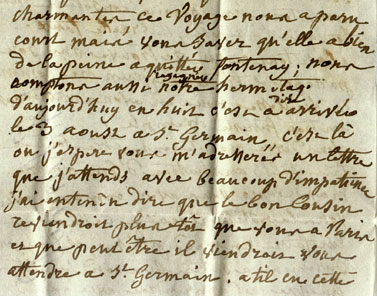 charmantes ce Voyage nous a paru
court mais vous savez qu'elle a bien
de la peine a quitter fontenay; nous
comptons aussi regagner notre hermitage
d'aujourd'huy en huit c'est a dire arriver
le 3 aoust a St Germain, c'est là
ou j'espere vous m'adresserés un lettre
que j'attends avec beaucoup d'impatience
j'ai entendu dire que le bon Cousin
reviendroit plus tôt que vous a Paris
et que peut être il viendroit vous
attendre a St Germain. a til en cette